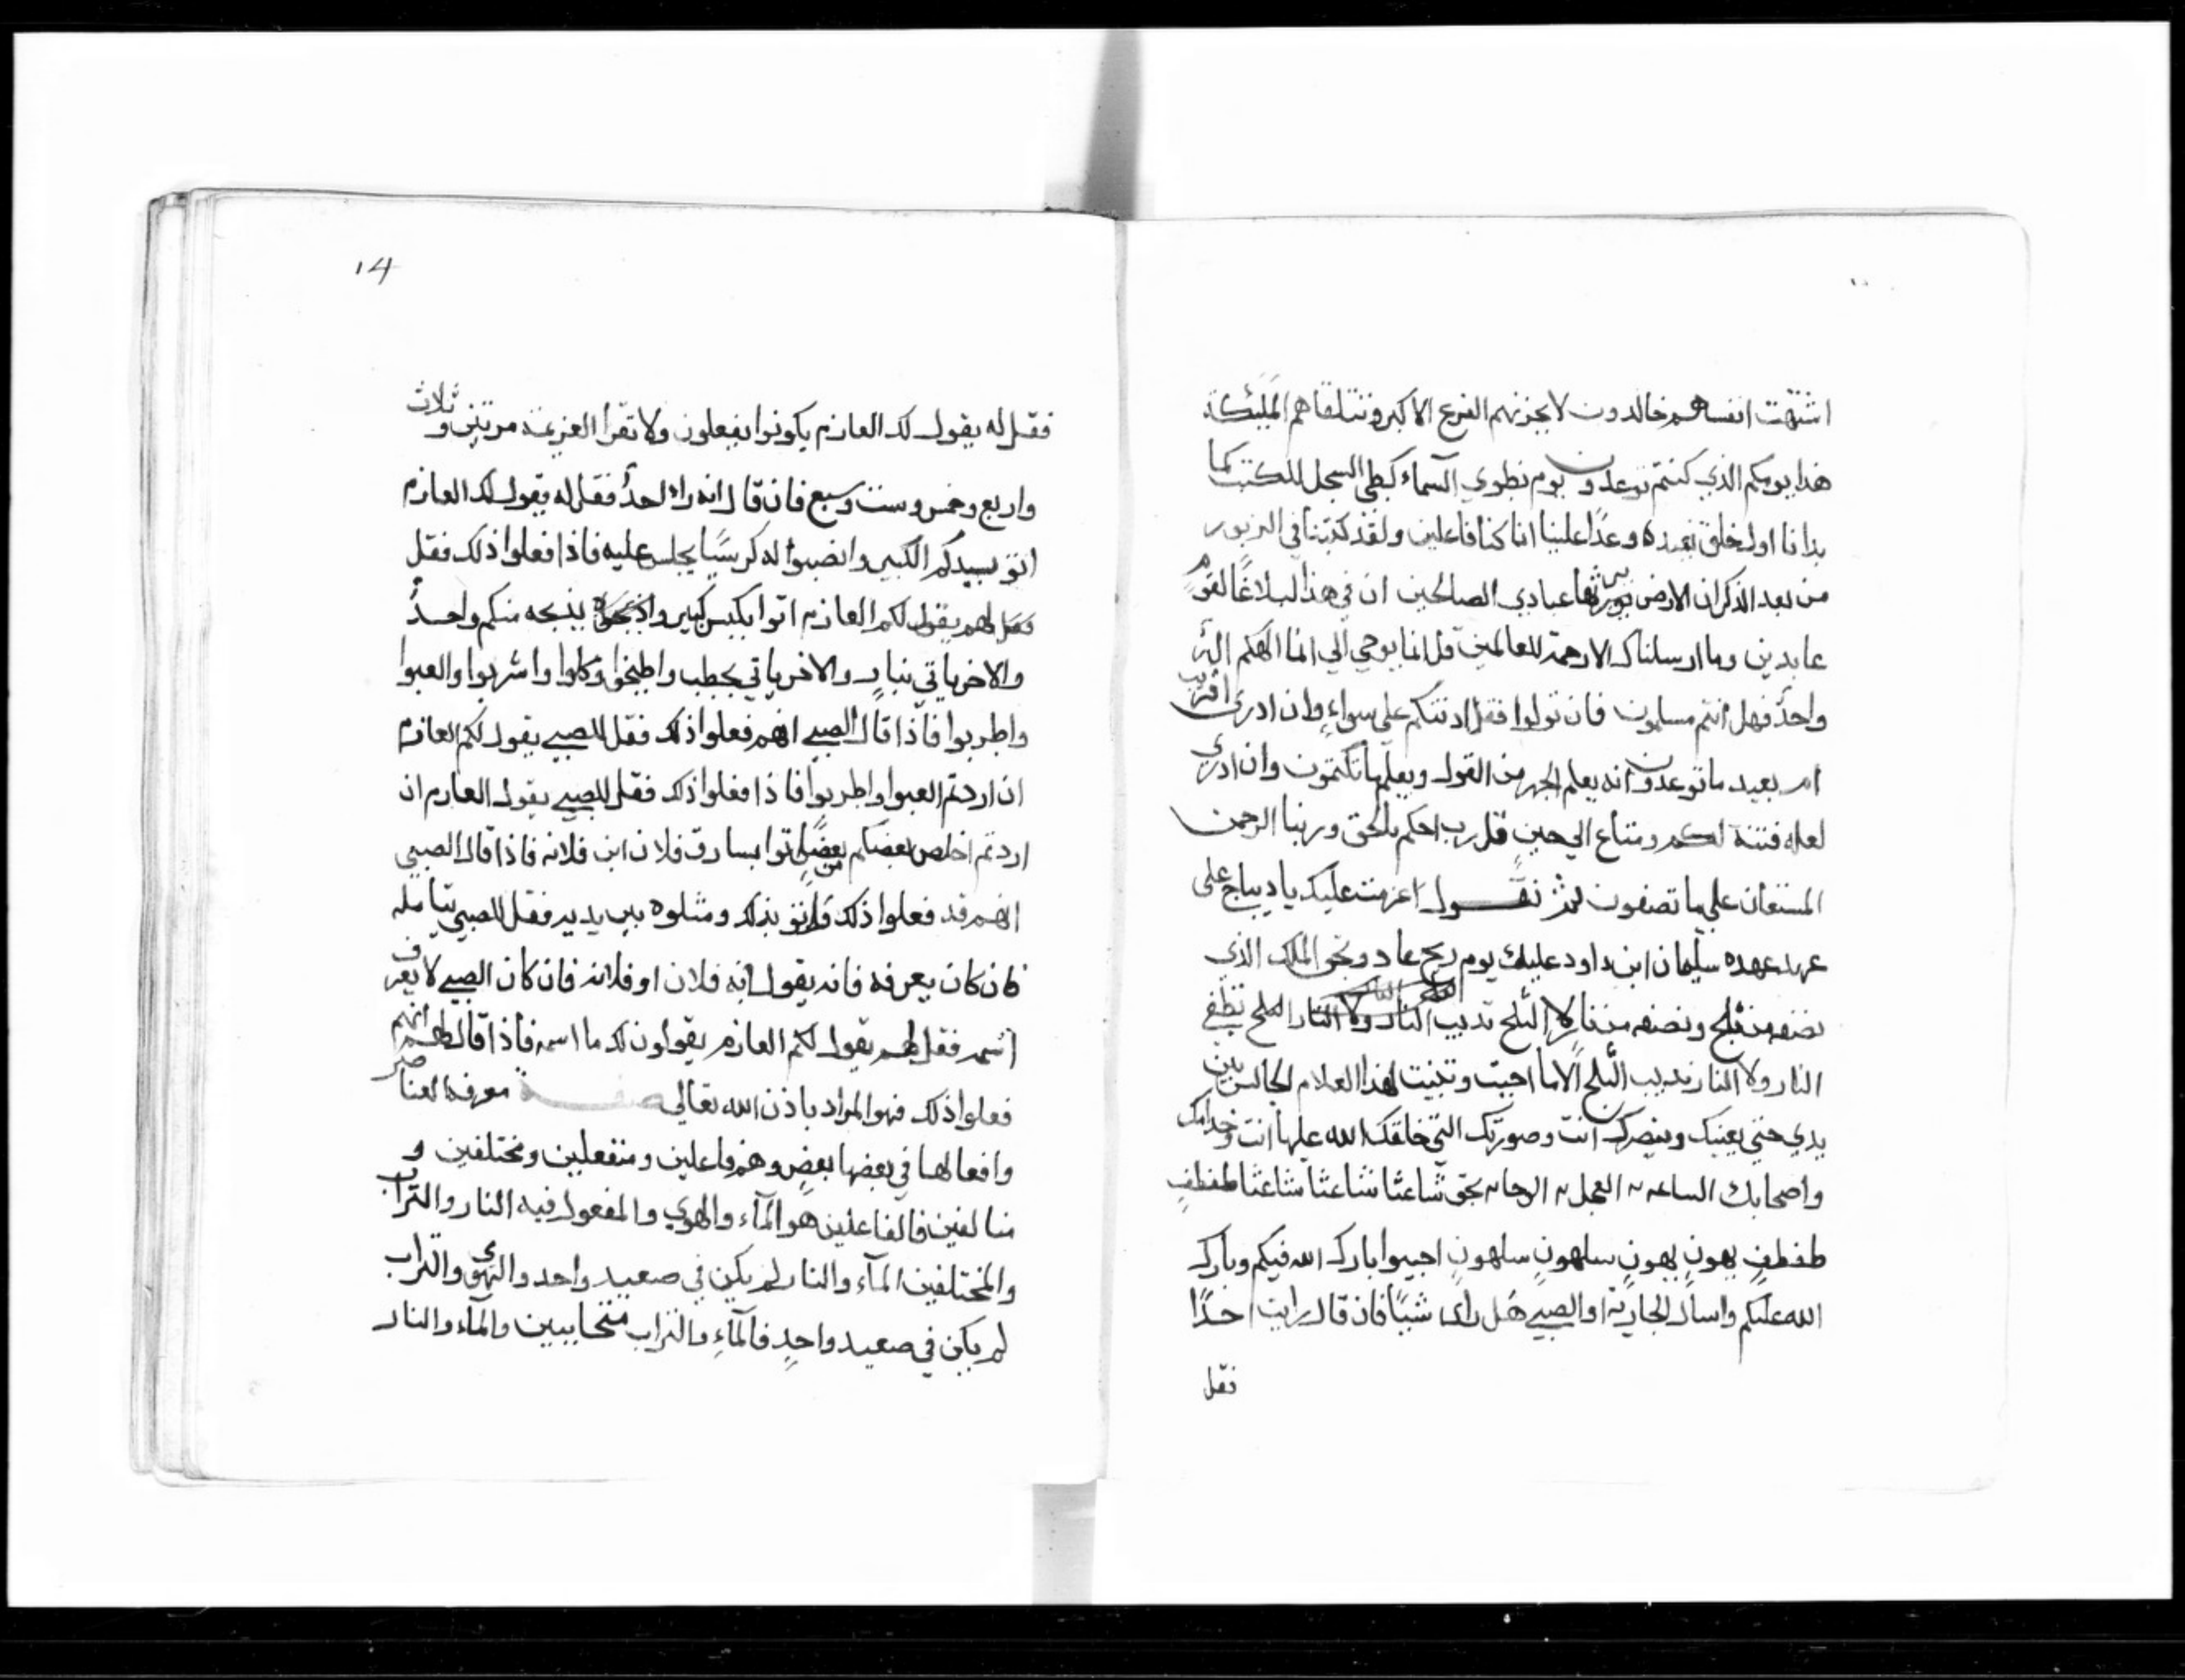 اشتهت انفسهم خالدون لا يحزنهم الفزع الاكبر وتتلقاهم المليكة
هذا يومكم الذي كنتم توعدون يوم نطوي السماء كطي السجل للكتب كما
بدانا اول خلق نعيده وعدًا علينا انا كنا فاعلين ولقد كتبنا في الزبور
من بعد الذكر ان الارض يرثها عبادي الصالحين ان في هذا لبلاغًا لقوم
عابدين وما ارسلناك الا رحمة للعالمين قل انما يوحي الي انما الهكم اله
واحدٌ فهل انتم مسلمون فان تولوا فقل اذنتكم علي سواءٍ وان ادري اقريب
ام بعيد ما توعدون انه يعلم الجهر من القول ويعلم ما تكتمون وان ادري
لعله فتنة لكم ومتاع الي حين قل رب احكم بالحق وربنا الرحمن
المستعان علي ما تصفون ثم تقــول اعزمت عليك يا ديباج على
عهد عهده سليمان ابن داود عليك يوم ريح عاد وبحق الملك الذي
نصفه من ثلج ونصفه من نار لا الثلج تديب النار ولا النار الثلج تطفي
النار ولا النار تديب الثلج الا ما اجبت وتبنيت لهذا الغلام الجالس بين
يدي حتي يعينك وينصرك انت وصورتك التي خلقك الله عليها انت وخدامك
واصحابك الساعه العجل الوحا بحق شاعثا شاعثا شاعثا طفطفٍ
طفطفٍ يهونٍ يهونٍ سلهونٍ سلهونٍ اجيبوا بارك الله فيكم وبارك
الله عليكم واسال الجارية او الصبي هل راى شيًا فان قال رايت احدًا
فقل
14
فقل له يقول لك العازم يكونوا يفعلون ولا تقرا العزيمة مرتين وثلاث
واربع وخمس وست وسبع فان قال انه راى احدٌ فقل له يقول لك العازم
اتوا بسيدكم الكبير وانصبوا له كرسيًا يجلس عليه فاذا فعلوا ذلك فقل
فقل لهم يقول لكم العازم اتوا بكبش كبير واذبحوه يذبحه منكم واحدٌ
والاخر ياتي بنارٍ والاخر ياتي بحطب واطبخوا وكلوا واشربوا والعبوا
واطربوا فاذا قال الصبي انهم فعلوا ذلك فقل للصبي يقول لكم العازم
ان اردتم العبوا واطربوا فاذا فعلوا ذلك فقل للصبي يقول العازم ان
اردتم اخلص بعضكم من بعضٍ اتوا بسارق فلان ابن فلانه فاذا قال الصبي
انهم قد فعلوا ذلك واتو بذلك ومثلوه بين يديه فقل للصبي يتامله
فان كان يعرفه فانه يقول انه فلان او فلانه فان كان الصبي لا يعرف
اسمه فقل لهم يقول لكم العازم يقولون لك ما اسمه فاذا قال لهم انهم
فعلوا ذلك فهو المراد باذن الله تعالي صفـــة معرفة العناصر
وافعالها في بعضها بعضٍ وهم فاعلين ومنفعلين ومختلفين و
متالفين فالفاعلين هو المآء والهوي والمفعول فيه النار والتراب
والمختلفين المآء والنار لم يكن في صعيد واحد والهوى والتراب
لم يكن في صعيد واحدٍ فالمآءِ والتراب متحاببين والمآء والنار